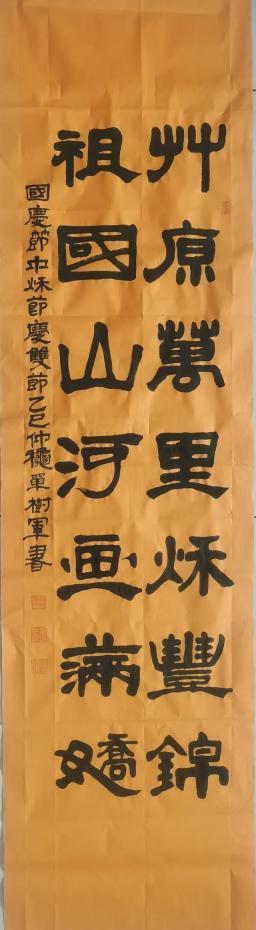 艸原萬里秌豐錦
祖國山河画滿嬌
國慶節中秌節慶雙節乙巳仲龝單樹軍書